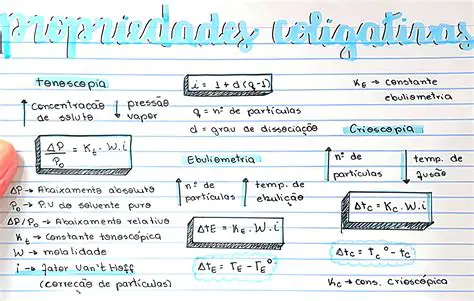 propriedades coligativas
Tonoscopia
↑ concentração de soluto ↓ pressão vapor
ΔP/P₀ = Kt . W . i
ΔP → Abaixamento absoluto
P₀ → P.V do solvente puro
ΔP/P₀ → Abaixamento relativo
Kt → Constante tonoscópica
W → molalidade
i → fator Van't Hoff
(correção de partículas)
i = 1 + α (q-1)
q = nº de partículas
α = grau de dissociação
Ebuliometria
↑ nº de partículas ↑ temp. de ebulição
ΔtE = KE . W . i
ΔtE = TE - TE°
KE → constante
ebuliometria
Crioscopia
↑ nº de partículas ↓ temp. de fusão
ΔtC = KC . W . i
ΔtC = TC° - tC
KC → cons. Crioscópica